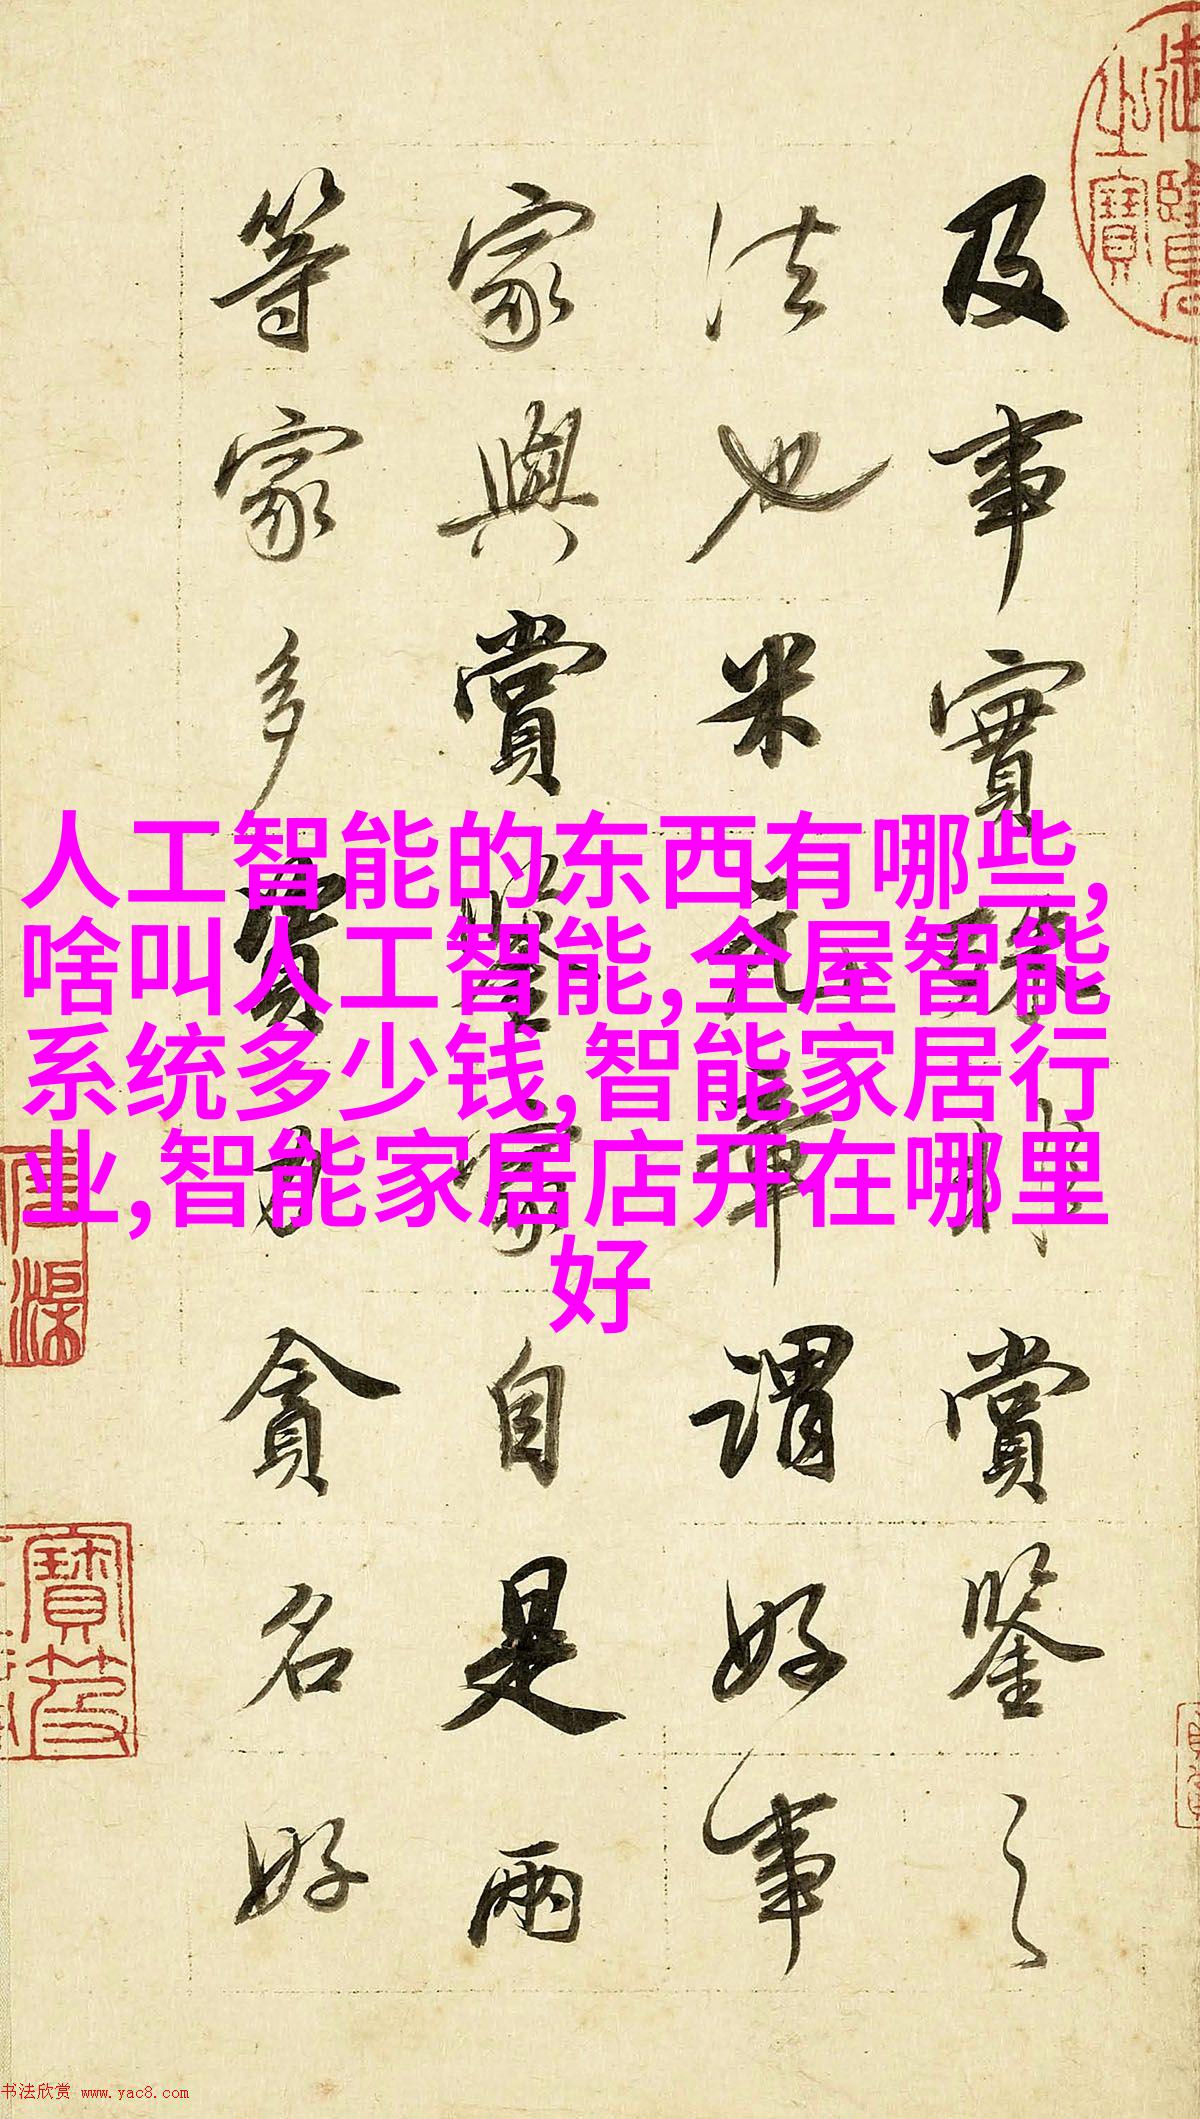 及事實珎賞鑒之
法也米元章謂好事
家與賞鑒家自是兩
等家多貪名好
人工智能的东西有哪些,
啥叫人工智能,全屋智能
系统多少钱,智能家居行
业,智能家居店开在哪里
好
书法欣赏 www.yac8.com